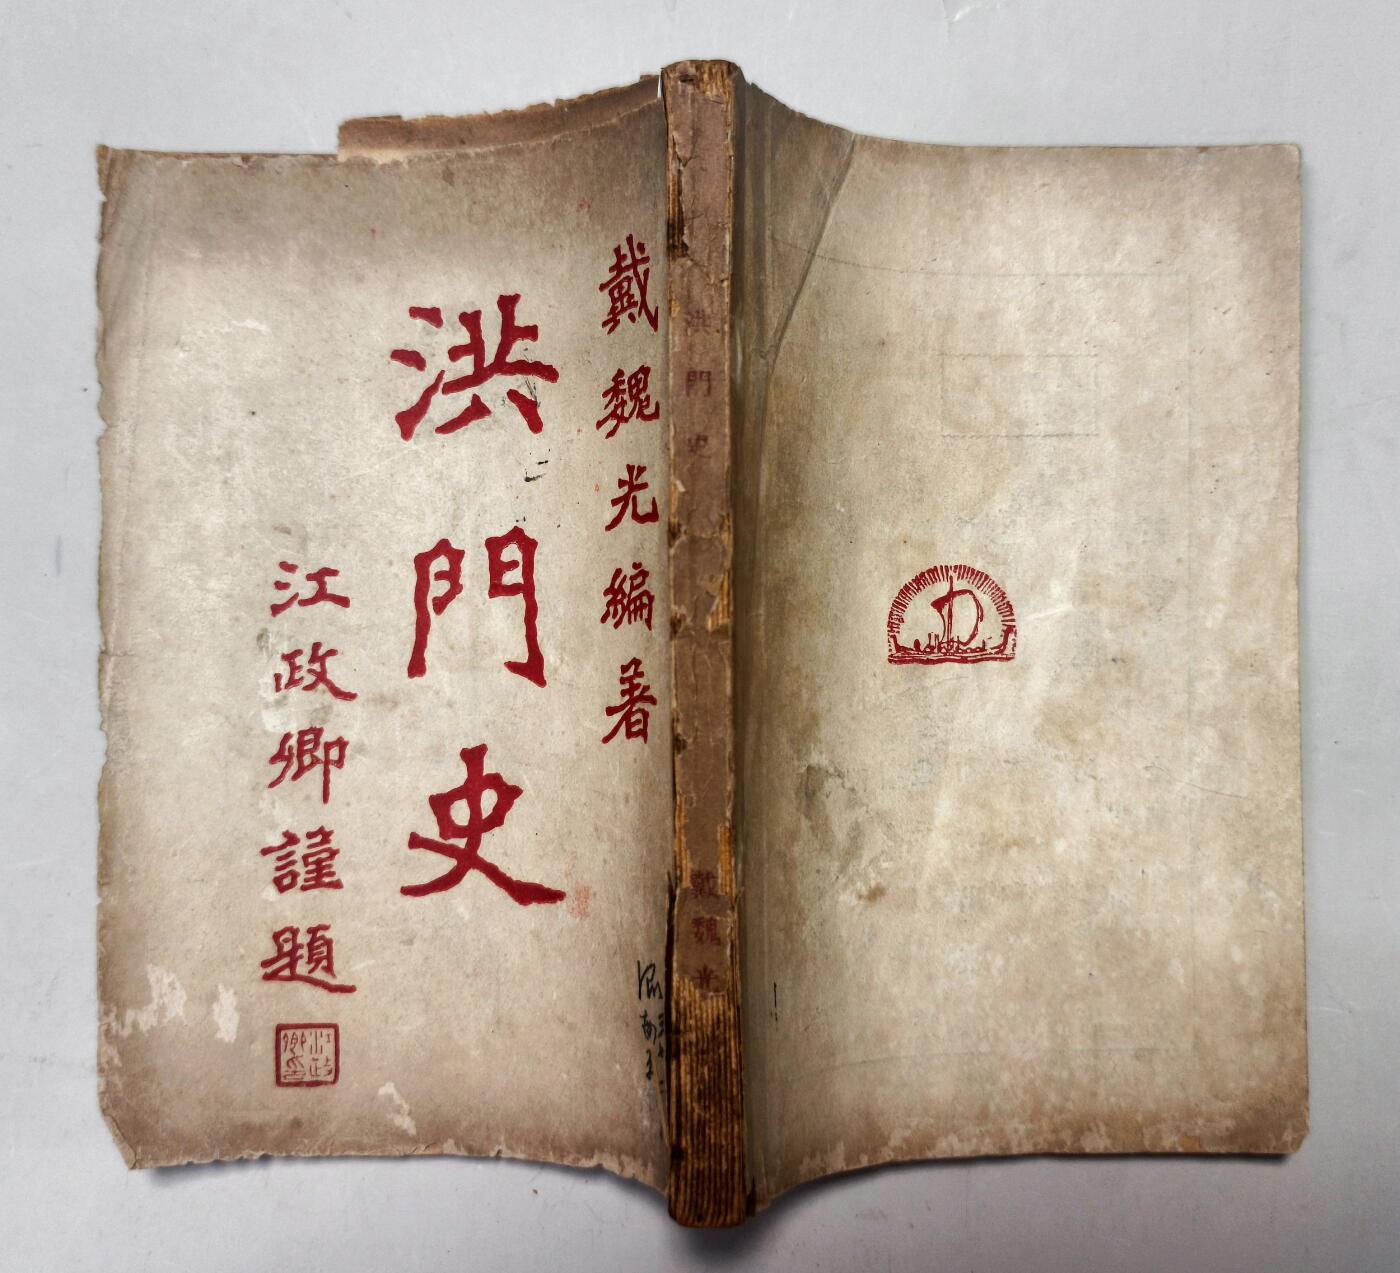 戴魏光編著
洪門史
江政卿謹題
江政卿印
洪門史
戴魏光